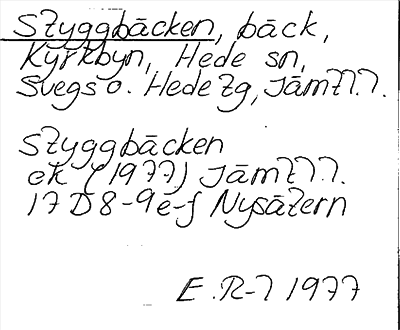 Styggbäcken, bäck,
Kyrkbyn, Hede sn,
Svegs o. Hede tg, Jämtl.
Styggbäcken
ek (1977) Jämtl.
17 D 8-9 e-f Nysätern
E. R-l 1977